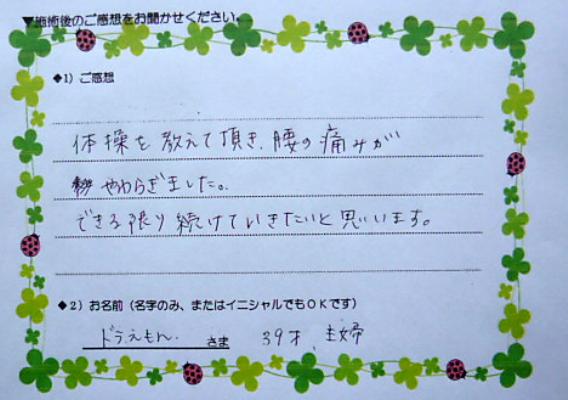 ▼施術後のご感想をお聞かせください。
◆1）ご感想
体操を教えて頂き、腰の痛みが
やわらぎました。
できる限り続けていきたいと思います。
◆2）お名前（名字のみ、またはイニシャルでもOKです）
ドラえもん. さま 39才、主婦